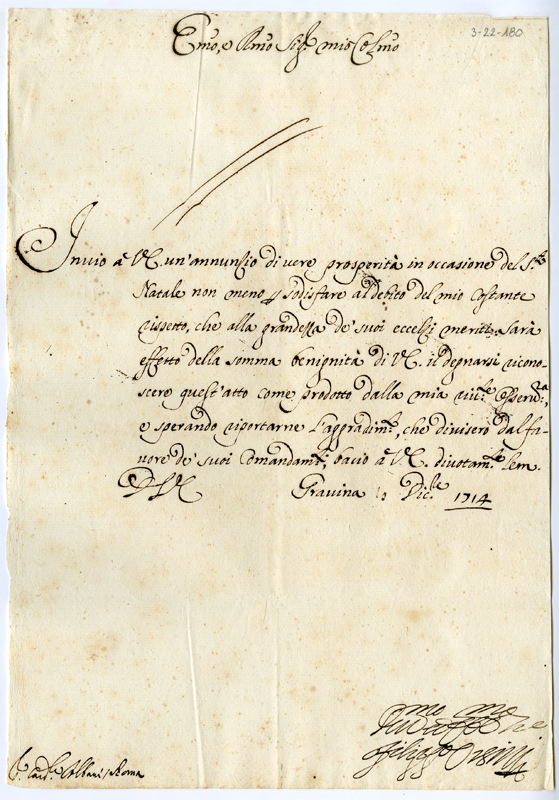 3-22-180
Emo, e Rmo Sig.r mio Colmo
Invio à VE. un'annunzio di vere prosperità in occasione del S.to
Natale non meno p sodisfare al debito del mio costante
rispetto, che alla grandezza de' suoi eccelsi meriti. Sarà
effetto della somma benignità di VE. il degnarsi ricono-
scere quest'atto come prodotto dalla mia riu.te osseru.za,
e sperando riportarne l'aggradim.to, che divisero dal fa-
uore de' suoi Comandam.ti, bacio à VE. divotam.te le m.
D VE Gravina 10 Dic.bre 1714
Filippo Orsini
S. Card.le Albani / Roma